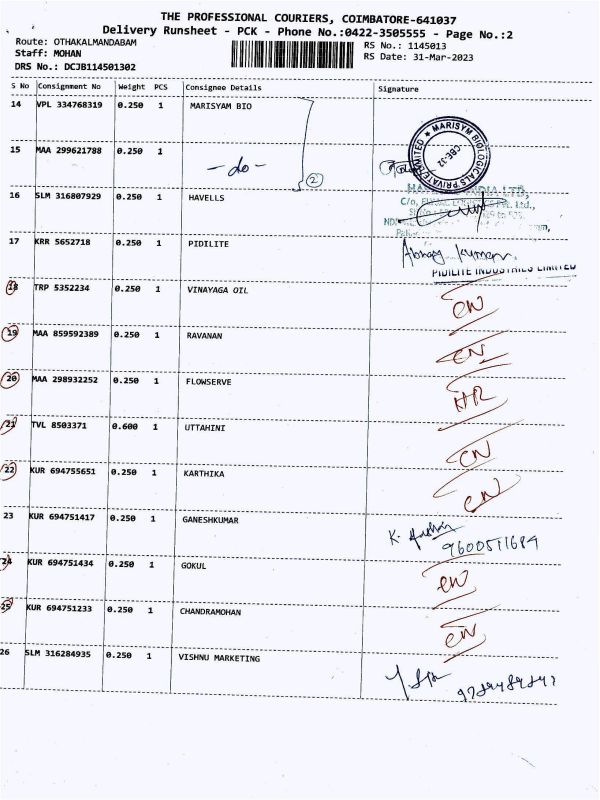 THE PROFESSIONAL COURIERS, COIMBATORE-641037
Delivery Runsheet - PCK - Phone No.:0422-3505555 - Page No.:2
Route: OTHAKALMANDABAM RS No.: 1145013
Staff: MOHAN RS Date: 31-Mar-2023
DRS No.: DCJB114501302
S No Consignment No Weight PCS Consignee Details Signature
14 VPL 334768319 0.250 1 MARISYAM BIO
MARISYM BIOLOGICALS PRIVATE LIMITED CBE-32
15 MAA 299621788 0.250 1 -do- 2
16 SLM 316807929 0.250 1 HAVELLS
17 KRR 5652718 0.250 1 PIDILITE Abhay Kumar
PIDILITE INDUSTRIES LIMITED
18 TRP 5352234 0.250 1 VINAYAGA OIL CN
19 MAA 859592389 0.250 1 RAVANAN CN
20 MAA 298932252 0.250 1 FLOWSERVE
21 TVL 8503371 0.600 1 UTTAHINI CN
22 KUR 694755651 0.250 1 KARTHIKA CN
23 KUR 694751417 0.250 1 GANESHKUMAR K.
9600511684
24 KUR 694751434 0.250 1 GOKUL CN
25 KUR 694751233 0.250 1 CHANDRAMOHAN CN
26 SLM 316284935 0.250 1 VISHNU MARKETING